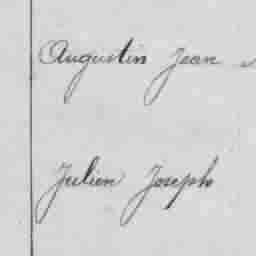 Augustin Jean
Julien Joseph